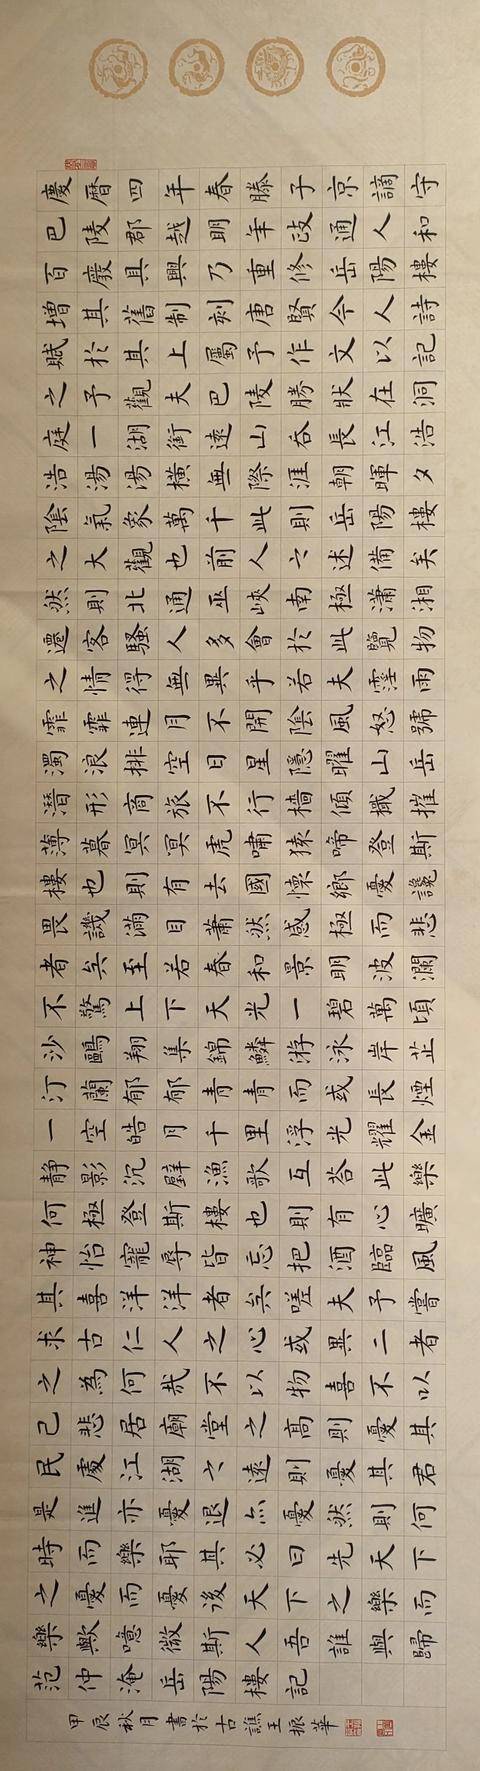 慶暦四年春滕子京謫守
巴陵郡越明年政通人和
百廢具興乃重修岳陽樓
增其舊制刻唐賢今人詩
賦於其上屬予作文以記
之予觀夫巴陵勝狀在洞
庭一湖銜遠山吞長江浩
浩湯湯橫無際涯朝暉夕
陰氣象萬千此則岳陽樓
之大觀也前人之述備矣
然則北通巫峽南極瀟湘
遷客騷人多會於此覽物
之情得無異乎若夫霪雨
霏霏連月不開陰風怒號
濁浪排空日星隱曜山岳
潛形商旅不行檣傾檝摧
薄暮冥冥虎嘯猿啼登斯
樓也則有去國懷鄉憂讒
畏譏滿目蕭然感極而悲
者矣至若春和景明波瀾
不驚上下天光一碧萬頃
沙鷗翔集錦鱗游泳岸芷
汀蘭郁郁青青而或長煙
一空皓月千里浮光耀金
靜影沉璧漁歌互荅此樂
何極登斯樓也則有心曠
神怡寵辱皆忘把酒臨風
其喜洋洋者矣嗟夫予嘗
求古仁人之心或異二者
之為何哉不以物喜不以
己悲居廟堂之高則憂其
民處江湖之遠則憂其君
是進亦憂退亦憂然則何
時而樂耶其必曰先天下
之憂而憂後天下之樂而
樂歟噫微斯人吾誰與歸
范仲淹岳陽樓記
甲辰秋月書於古譙王振華